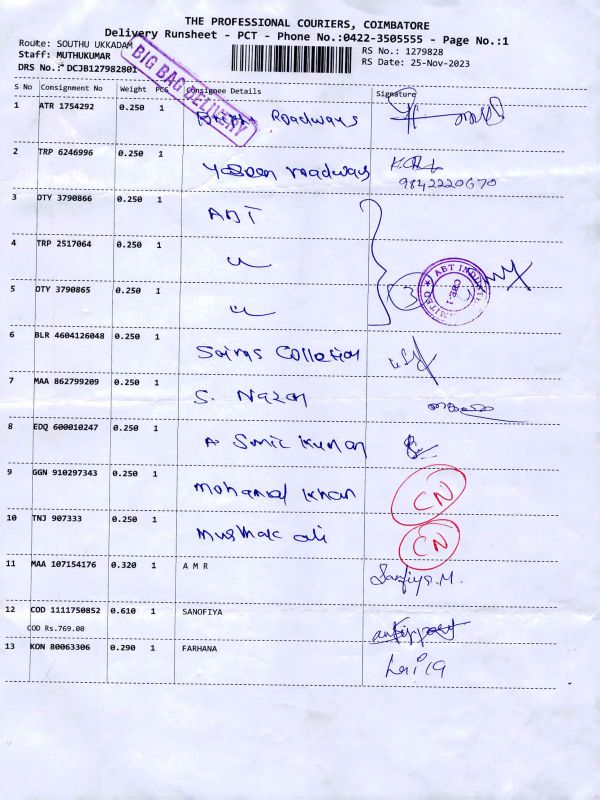 THE PROFESSIONAL COURIERS, COIMBATORE
Delivery Runsheet - PCT - Phone No.:0422-3505555 - Page No.:1
Route: SOUTHU UKKADAM
RS No.: 1279828
Staff: MUTHUKUMAR
RS Date: 25-Nov-2023
DRS No.: DCJB127982801
BIG BAG DELIVERY
S No Consignment No Weight PCS Consignee Details Signature
1 ATR 1754292 0.250 1 Roadways
2 TRP 6246996 0.250 1 Yaseen roadways
9842220670
3 DTY 3790866 0.250 1 ABT
4 TRP 2517064 0.250 1 〃
3 ABT INDUSTRIES LIMITED CBE-1
5 DTY 3790865 0.250 1 〃
6 BLR 4604126048 0.250 1
7 MAA 862799209 0.250 1 S. Nazar
8 EDQ 600010247 0.250 1 Kumar
9 GGN 910297343 0.250 1 Mohamed Khan CN
10 TNJ 907333 0.250 1 Mushtak ali CN
11 MAA 107154176 0.320 1 A M R Sanfiya.M.
12 COD 1111750852 0.610 1 SANOFIYA
COD Rs.769.00
13 KON 80063306 0.290 1 FARHANA